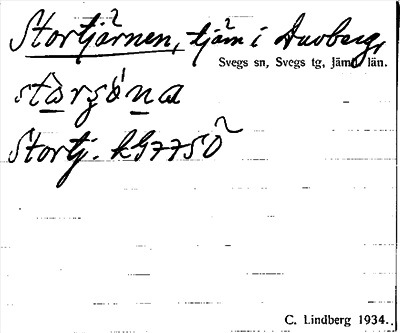 Stortjärnen, tjärn i Duvberg,
Svegs sn, Svegs tg, Jämtl. län.
Stortj. kG77SÖ
C. Lindberg 1934.